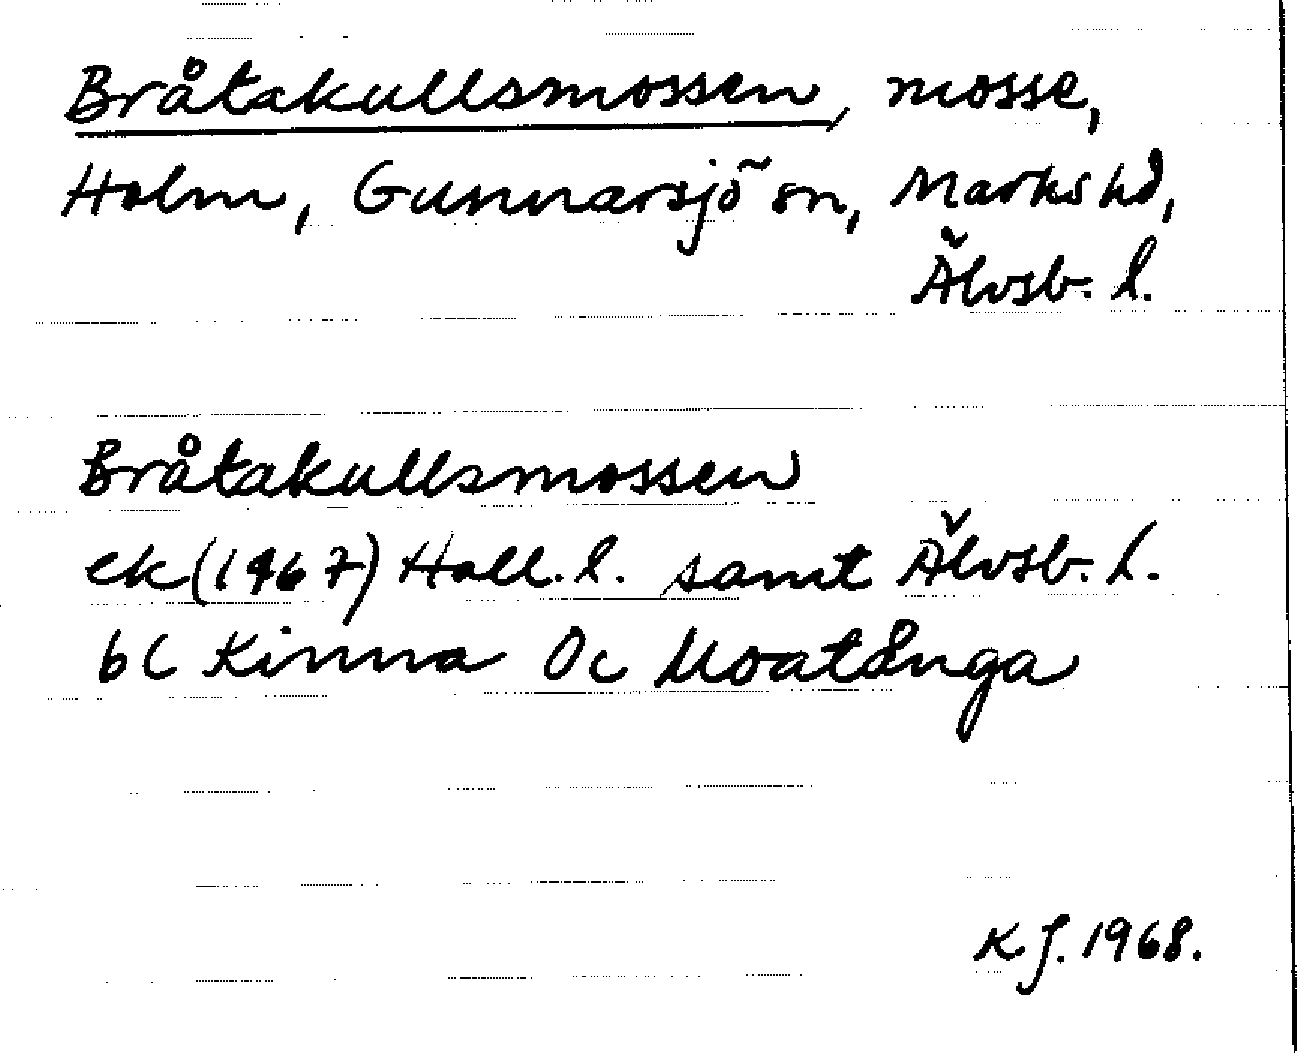 Bråtakullsmossen, mosse,
Holm, Gunnarsjö sn, Marks hd,
Älvsb. l.
Bråtakullsmossen
ek (1967) Hall. l. samt Älvsb. l.
6C Kinna 0c Moatånga
K.J. 1968.